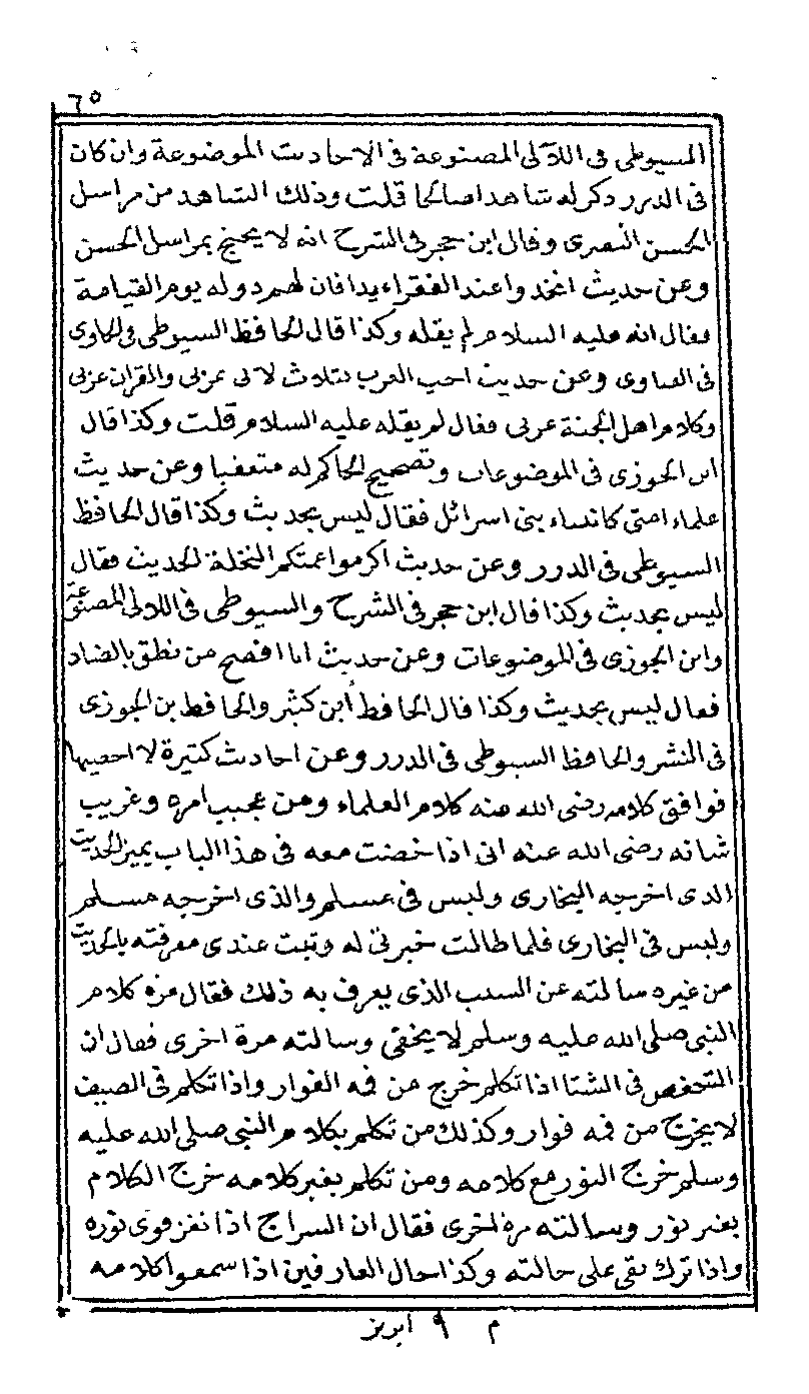 ٦٥
السيوطى فى اللآلى المصنوعة فى الاحاديث الموضوعة وان كان
فى الدرر ذكر له شاهدا صالحا قلت وذلك الشاهد من مراسل
الحسن البصرى وقال ابن حجر فى الشرح انه لا يحتج بمراسل الحسن
وعن حديث اتخذوا عند الفقراء يدا فان لهم دولة يوم القيامة
فقال انه عليه السلام لم يقله وكذا قال الحافظ السيوطى فى الحاوى
فى الفتاوى وعن حديث احب العرب لثلاث لانى عربى والقران عربى
وكلام اهل الجنة عربى فقال لم يقله عليه السلام قلت وكذا قال
ابن الجوزى فى الموضوعات وتصحيح الحاكم له متعقبا وعن حديث
علماء امتى كانبياء بنى اسرائل فقال ليس بحديث وكذا قال الحافظ
السيوطى فى الدرر وعن حديث اكرموا عمتكم النخلة الحديث فقال
ليس بحديث وكذا قال ابن حجر فى الشرح والسيوطى فى اللالى المصنوعة
وابن الجوزى فى الموضوعات وعن حديث انا افصح من نطق بالضاد
فقال ليس بحديث وكذا قال الحافظ ابن كثير والحافظ بن الجوزى
فى النشر والحافظ السيوطى فى الدرر وعن احاديث كثيرة لا احصيها
فوافق كلامه رضى الله عنه كلام العلماء ومن عجيب امره وغريب
شانه رضى الله عنه انى اذا خضت معه فى هذا الباب يميز الحديث
الذى اخرجه البخارى وليس فى مسلم والذى اخرجه مسلم
وليس فى البخارى فلما طالت خبرتى له وثبت عندى معرفته بالحديث
من غيره سالته عن السبب الذى يعرف به ذلك فقال مرة كلام
النبى صلى الله عليه وسلم لا يخفى وسالته مرة اخرى فقال ان
الشخص فى الشتا اذا تكلم خرج من فمه الفوار واذا تكلم فى الصيف
لا يخرج من فمه فوار وكذلك من تكلم بكلام النبى صلى الله عليه
وسلم خرج النور مع كلامه ومن تكلم بغير كلامه خرج الكلام
بغير نور وسالته مرة اخرى فقال ان السراج اذا نغز قوى نوره
واذا ترك بقى على حالته وكذا حال العارفين اذا سمعوا كلامه
م ٩ ابريز